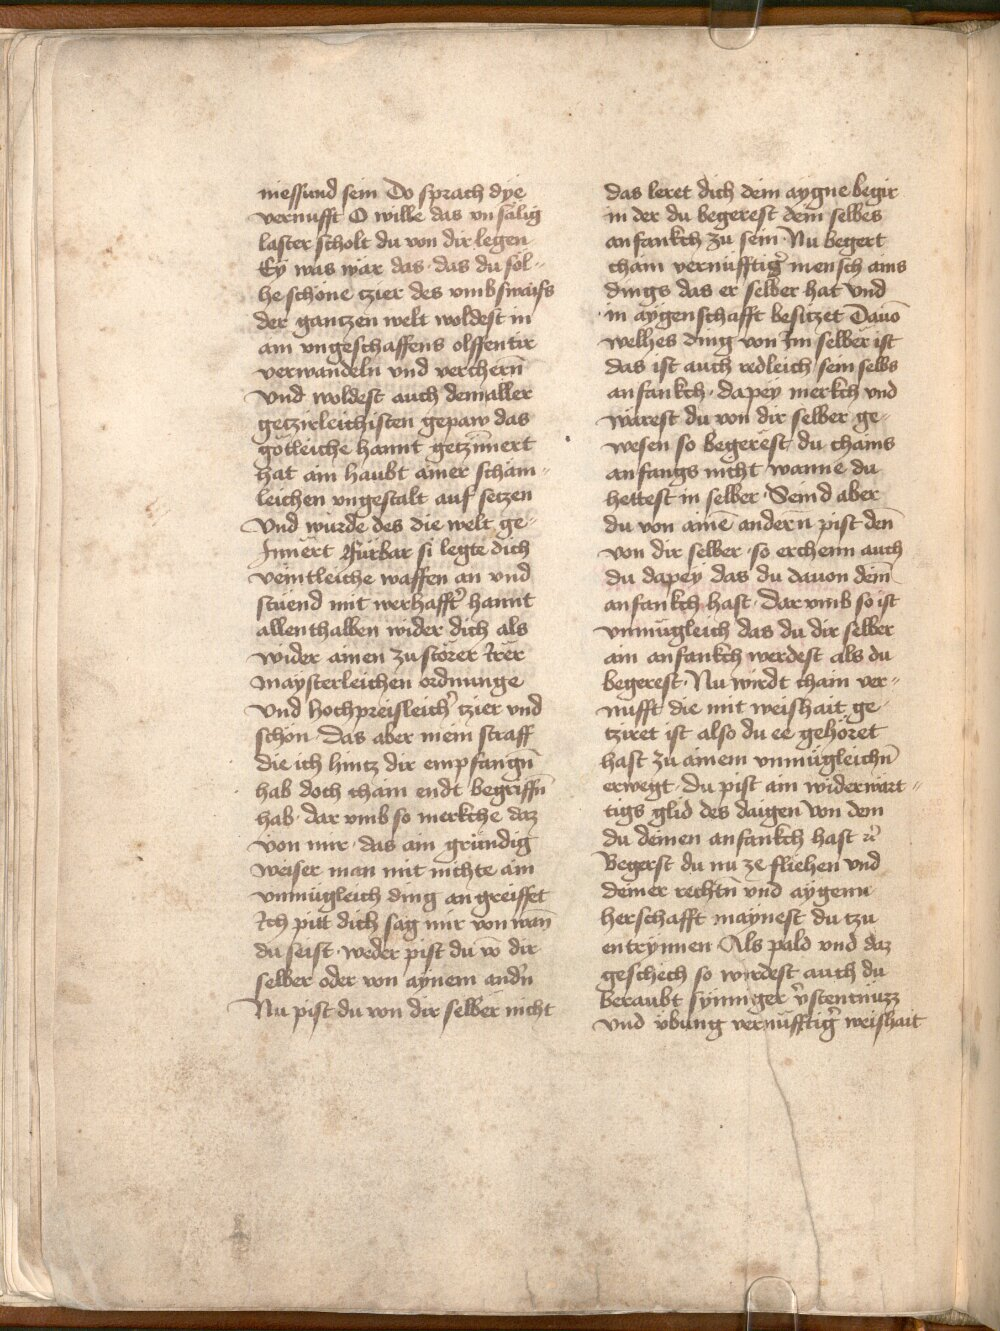 niessund sein Do sprach dye
vernufft O wille das vn sälig
laster scholt du von dir legen
Ey was wär das · das du sol-
he schöne tzier des vmbswaifs
der gantzen welt woldest in
ain vngeschaffens olffentir
verwandeln vnd verchern̄
Vnd woldest auch dem aller
getzirleichisten gepaw das
götleiche hannt getzim̄ert
hat ain haubt ainer scham-
leichen vngestalt auf setzen
Vnd wurde des die welt ge-
Innert Fürbar si legte dich
veintleiche waffen an vnd
stüend mit werhaffter hannt
allenthalben wider dich als
wider ainen zustörer Irer
maysterleichen ordnunge
Vnd hochpreisleicher tzier vnd
schön · Das aber mein straff
die ich hintz dir empfangn̄
hab doch chain endt begriffn̄
hab · dar vmb so merkche daz
von mir · das ain gründig
weiser man mit nichte ain
vnmügleich ding an greiffet
Ich pitt dich sag mir von wan̄
du seist · weder pist du vō dir
selber oder von aynem andn̄
Nu pist du von dir selber nicht
das leret dich dein aygne begir
in der du begerest dein selbes
anfankch zu sein · Nu begert
chain vernüfftiger mensch ains
dings das er selber hat vnd
in aygenschafft besitzet Dauō
welhes ding von Im selber ist
das ist auch redleich sein selbs
anfankch · dapey merkch vnd
wärest du von dir selber ge-
wesen so begerest du chains
anfangs nicht wanne du
hettest in selber · Seind aber
du von ainē andern̄ pist den̄
von dir selber · so erchenn auch
du dapey das du dauon dein̄
anfankch hast · Dar vmb so ist
vnmügleich das du dir selber
ain anfankch werdest als du
begerest · Nu wirdt chain ver-
nufft die mit weishait ge-
tziret ist also du ee gehöret
hast zu ainem vnmügleichn̄
erwegt · du pist ain widerwärt-
tigs glid des daigen von dem
du deinen anfankch hast
Begerst du nu ze fliehen vnd
deiner rechtn̄ vnd aygenn
herschafft maynest du tzu
entrynnen Als pald vnd daz
geschech so wirdest auch du
beraubt synniger v̉stentnüzz
vnd vbung vernüfftiger weishait